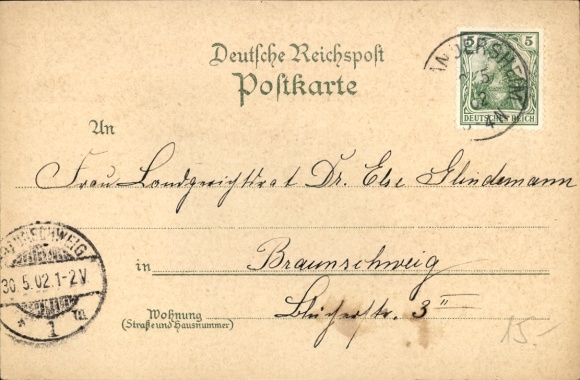 Deutsche Reichspost
Postkarte
5 5
DEUTSCHES REICH
ANDERSHEIM
5
02
4N
An
Frau Landgerichtsrat Dr. Else Glindemann
in Braunschweig
Wohnung
(Straße und Hausnummer)
Blücherstr. 3 II
BRAUNSCHWEIG
30.5.02.1-2V
* 1 m
15.-